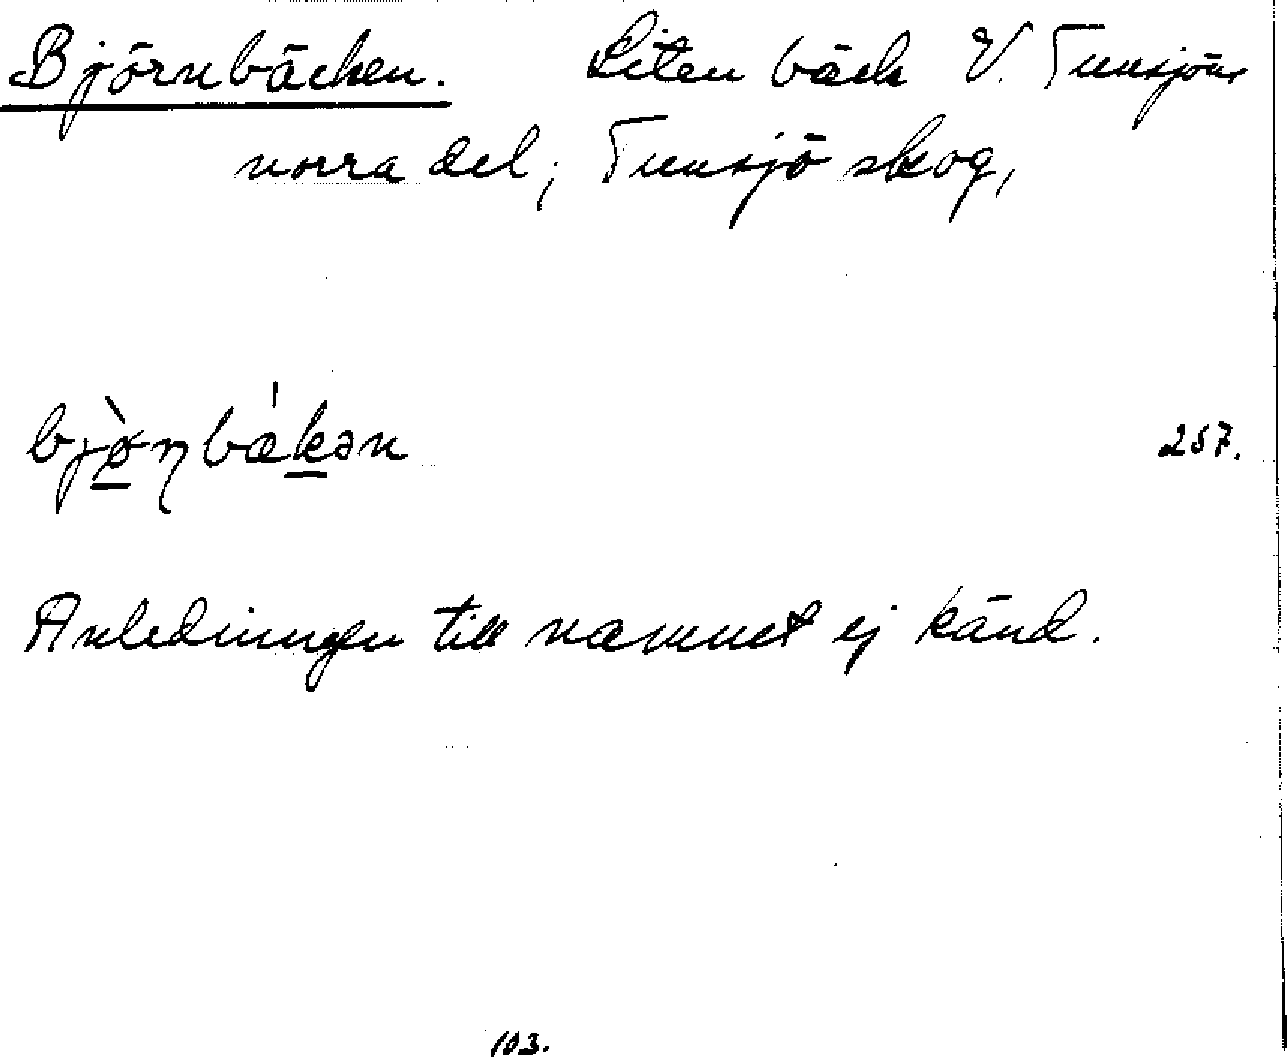 Björnbäcken. Liten bäck V. Tunsjöns
norra del; Tunsjö skog,
bjø̀ɳbækən 257.
Anledningen till namnet ej känd.
103.